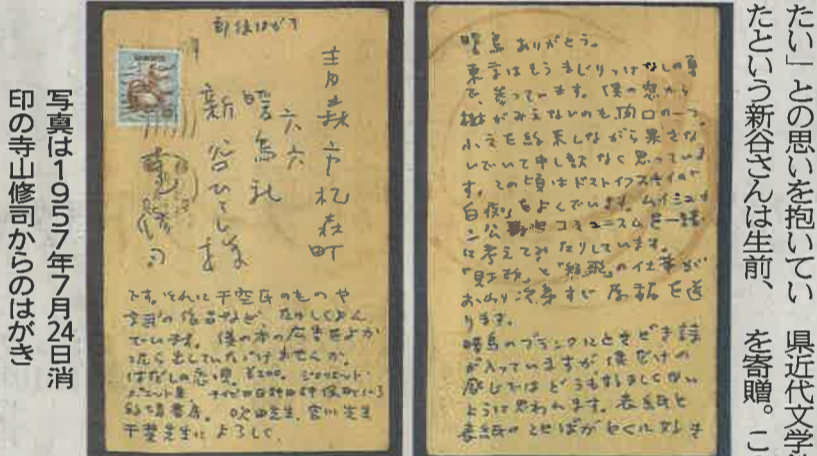 たい」との思いを抱いてい
たという新谷さんは生前、
県近代文学
を寄贈。こ
暁鳥ありがとう。
東京はもうまじりっけなしの夏
で、参っています。僕の窓から
樹がみえないのも閉口の一つ。
小文を約束しながら果さな
いでいて申し訳なく思っていま
す。この頃はドストイフスキイの「
白痴」をよんでいます。ムイシュキ
ン公 コミュニズムを一緒
に考えてみたりしています。
の仕事が
おわり次第すぐ原稿を送
ります。
暁鳥のブランクにときどき詩
が入っていますが僕だけの
感じではどうも好ましくない
ように思われます。表紙と
表紙のことばがとくに好き
郵便はがき
青森市松森町
六六
暁鳥社
新谷ひろし様
寺山修司
です。それに千空氏のものや
作品など たのしくよん
でいます。僕の本の広告をよか
ったら出していただけませんか。
はだしの恋唄。¥200。
的場書房。吹田先生、宮川先生
千空先生によろしく。
写真は1957年7月24日消
印の寺山修司からのはがき